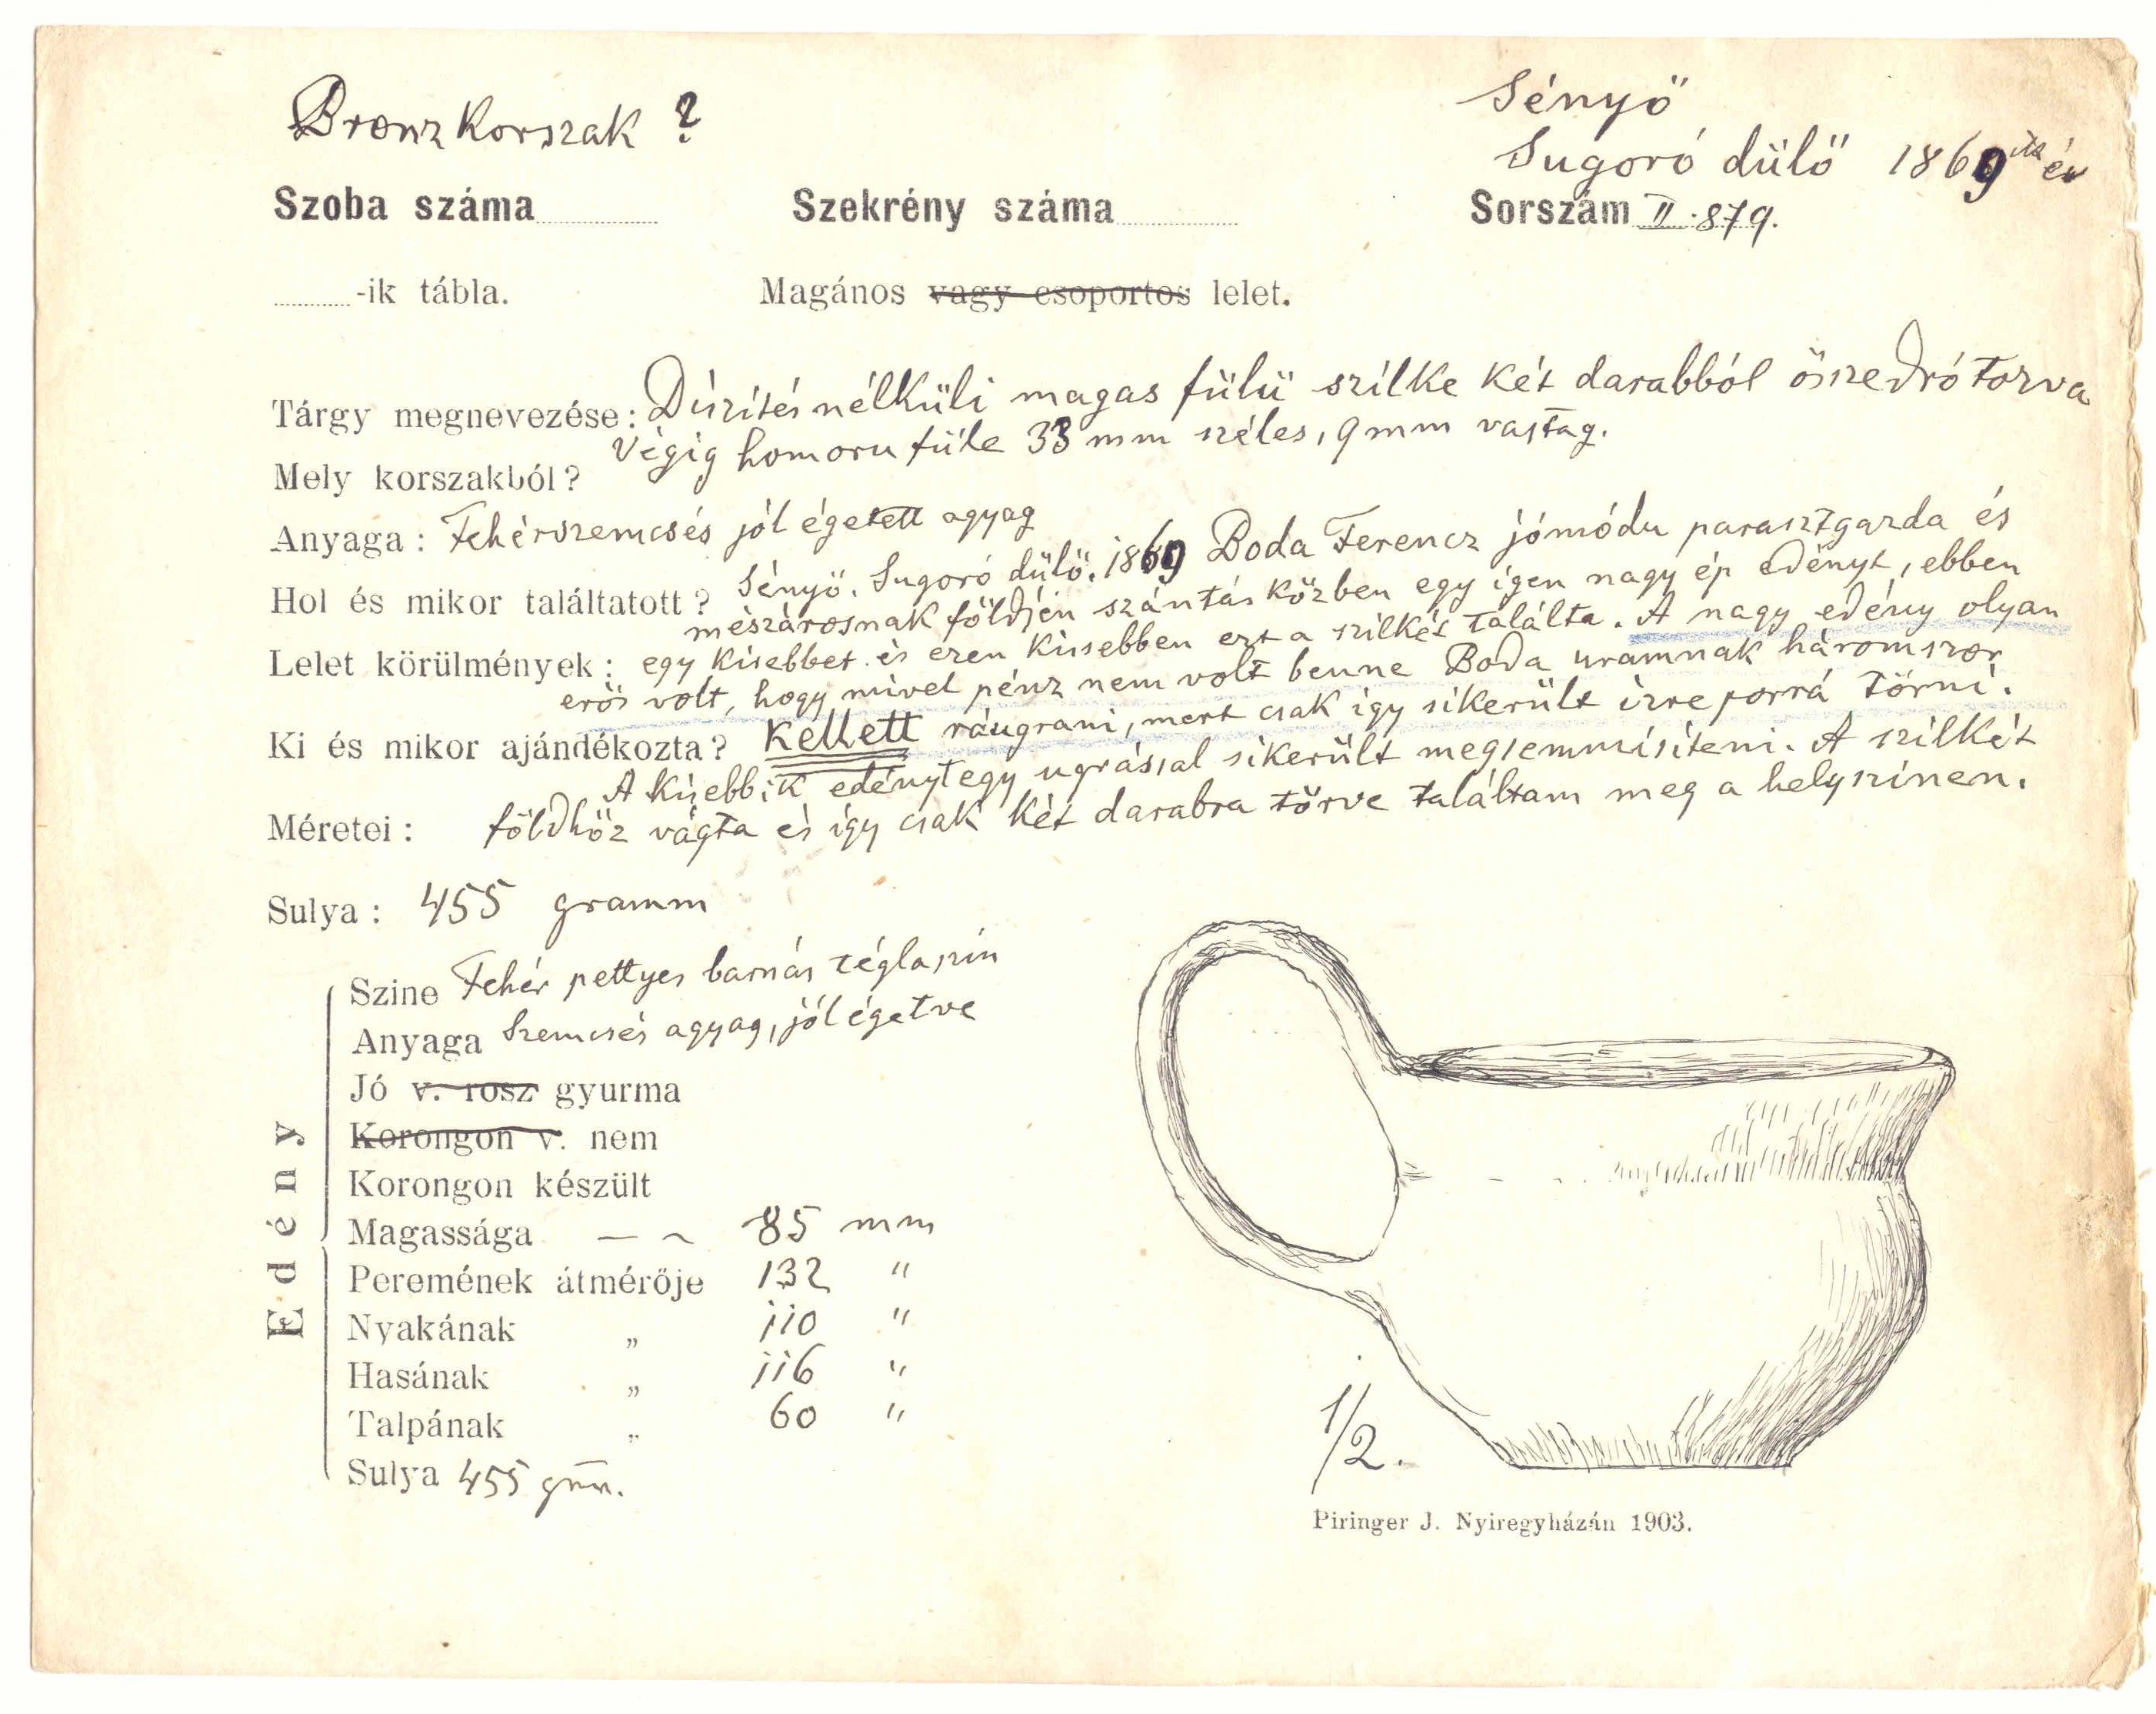 Bronz Korszak ?
Sényö
Sugoró dülö 1869 ik év
Szoba száma
Szekrény száma
Sorszám II. 879.
-ik tábla.
Magános vagy csoportos lelet.
Tárgy megnevezése: Dísítés nélküli magas fülü szilke két darabból összedrótozva
Végig homoru füle 33 mm széles, 9 mm vastag.
Mely korszakból?
Anyaga: Fehérszemcsés jól égetett agyag
Hol és mikor találtatott? Sényö. Sugoró dülö. 1869 Boda Ferencz jómódu parasztgazda és
mészárosnak földjén szántás közben egy igen nagy ép edényt, ebben
Lelet körülmények: egy kisebbet és ezen kissebben ezt a szilkét találta. A nagy edény olyan
erös volt, hogy mivel pénz nem volt benne Boda uramnak háromszor
Ki és mikor ajándékozta? kellett ráugrani, mert csak igy sikerült izre porrá törni.
A kisebbik edényt egy ugrással sikerült megsemmisíteni. A szilkét
Méretei: földhöz vágta és igy csak két darabra törve találtam meg a helyszinen.
Sulya: 455 gramm
Edény
Szine Fehér pettyes barnás téglaszin
Anyaga Szemcsés agyag, jól égetve
Jó v. rosz gyurma
Korongon v. nem
Korongon készült
Magassága — ~ 85 mm
Peremének átmérője 132 "
Nyakának „ 110 "
Hasának „ 116 "
Talpának „ 60 "
Sulya 455 grm.
1/2.
Piringer J. Nyiregyházán 1903.